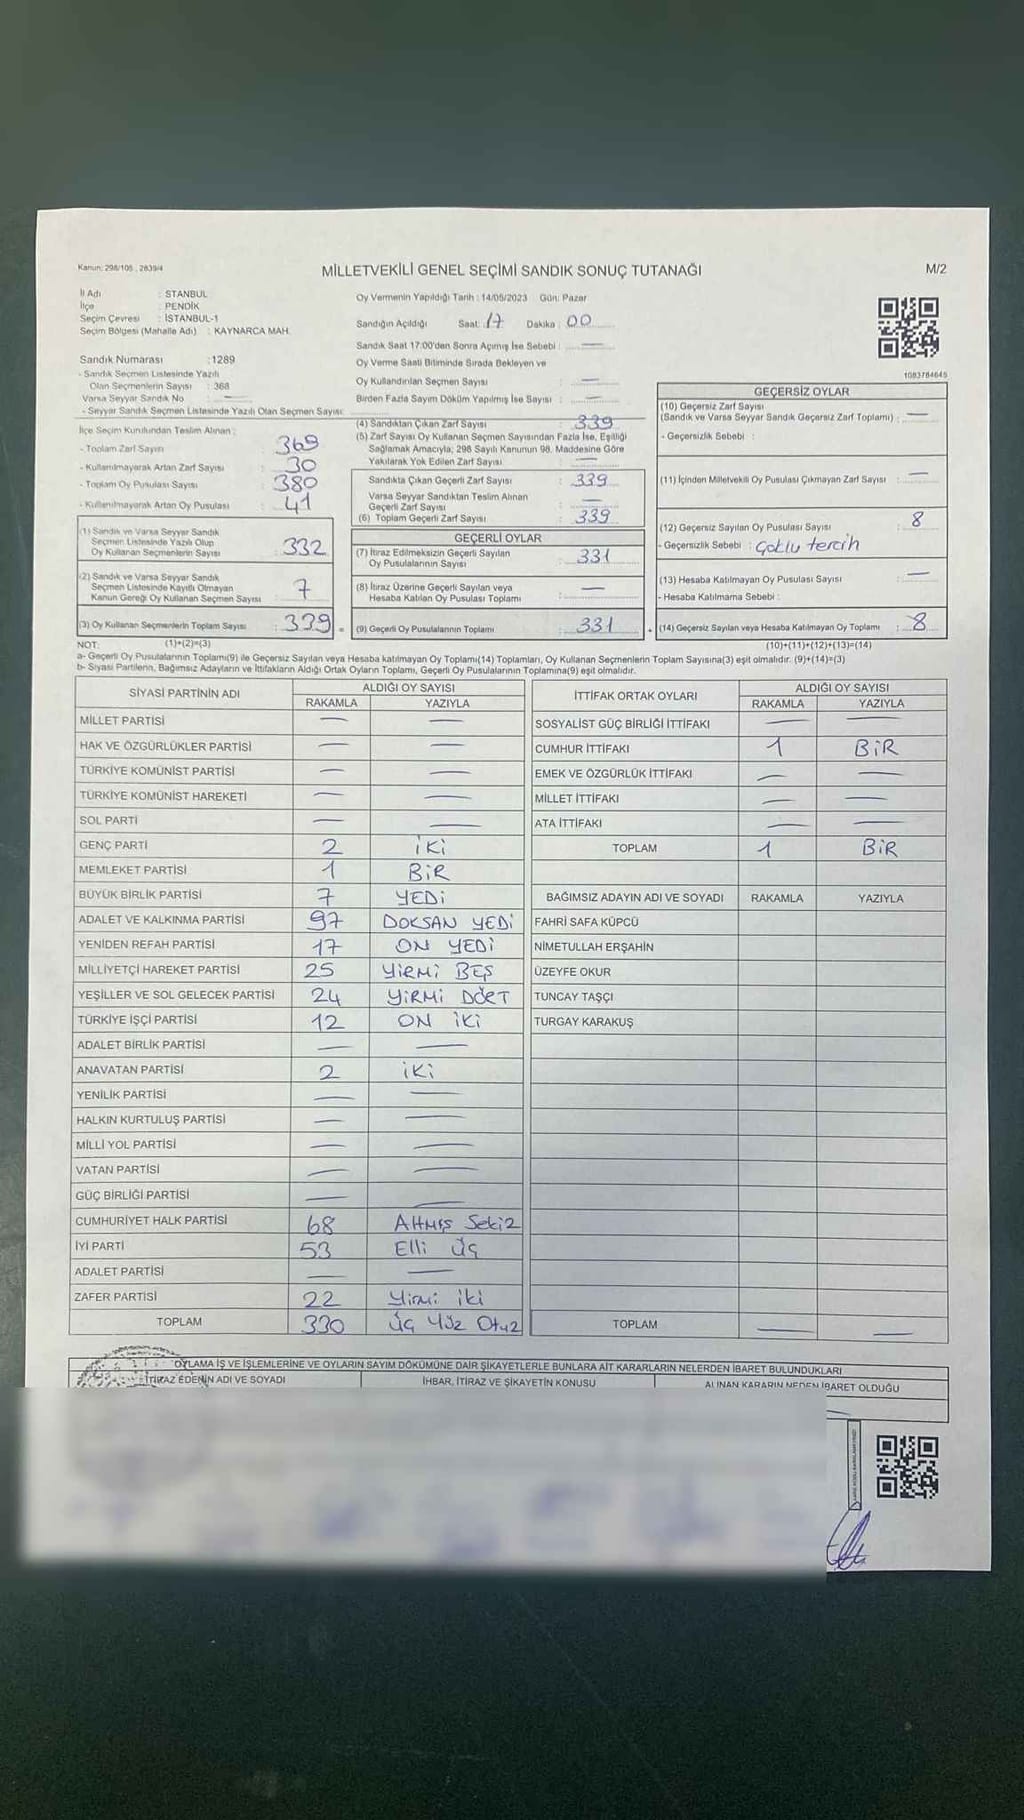 Kanun: 298/105 , 2839/4
MİLLETVEKİLİ GENEL SEÇİMİ SANDIK SONUÇ TUTANAĞI
M/2
İl Adı : STANBUL
İlçe : PENDİK
Seçim Çevresi : İSTANBUL-1
Seçim Bölgesi (Mahalle Adı) : KAYNARCA MAH.
Sandık Numarası :1289
- Sandık Seçmen Listesinde Yazılı
Olan Seçmenlerin Sayısı : 368
Varsa Seyyar Sandık No : —
- Seyyar Sandık Seçmen Listesinde Yazılı Olan Seçmen Sayısı:
İlçe Seçim Kurulundan Teslim Alınan :
- Toplam Zarf Sayısı : 369
- Kullanılmayarak Artan Zarf Sayısı : 30
- Toplam Oy Pusulası Sayısı : 380
- Kullanılmayarak Artan Oy Pusulası : 41
(1) Sandık ve Varsa Seyyar Sandık
Seçmen Listesinde Yazılı Olup
Oy Kullanan Seçmenlerin Sayısı : 332
(2) Sandık ve Varsa Seyyar Sandık
Seçmen Listesinde Kayıtlı Olmayan
Kanun Gereği Oy Kullanan Seçmen Sayısı : 7
(3) Oy Kullanan Seçmenlerin Toplam Sayısı : 339 =
Oy Vermenin Yapıldığı Tarih : 14/05/2023 Gün: Pazar
Sandığın Açıldığı Saat: 17 Dakika : 00
Sandık Saat 17:00'den Sonra Açımış İse Sebebi : —
Oy Verme Saati Bitiminde Sırada Bekleyen ve
Oy Kullandırılan Seçmen Sayısı : —
Birden Fazla Sayım Döküm Yapılmış İse Sayısı : —
(4) Sandıktan Çıkan Zarf Sayısı : 339
(5) Zarf Sayısı Oy Kullanan Seçmen Sayısından Fazla İse, Eşitliği
Sağlamak Amacıyla; 298 Sayılı Kanunun 98. Maddesine Göre
Yakılarak Yok Edilen Zarf Sayısı : —
Sandıkta Çıkan Geçerli Zarf Sayısı : 339
Varsa Seyyar Sandıktan Teslim Alınan
Geçerli Zarf Sayısı : —
(6) Toplam Geçerli Zarf Sayısı : 339
GEÇERLİ OYLAR
(7) İtiraz Edilmeksizin Geçerli Sayılan
Oy Pusulalarının Sayısı : 331
(8) İtiraz Üzerine Geçerli Sayılan veya
Hesaba Katılan Oy Pusulası Toplamı : —
(9) Geçerli Oy Pusulalarının Toplamı : 331 +
1083784645
GEÇERSİZ OYLAR
(10) Geçersiz Zarf Sayısı
(Sandık ve Varsa Seyyar Sandık Geçersiz Zarf Toplamı) : —
- Geçersizlik Sebebi :
(11) İçinden Milletvekili Oy Pusulası Çıkmayan Zarf Sayısı : —
(12) Geçersiz Sayılan Oy Pusulası Sayısı : 8
- Geçersizlik Sebebi : Çoklu tercih
(13) Hesaba Katılmayan Oy Pusulası Sayısı : —
- Hesaba Katılmama Sebebi :
(14) Geçersiz Sayılan veya Hesaba Katılmayan Oy Toplamı : 8
NOT: (1)+(2)=(3)
(10)+(11)+(12)+(13)=(14)
a- Geçerli Oy Pusulalarının Toplamı(9) ile Geçersiz Sayılan veya Hesaba katılmayan Oy Toplamı(14) Toplamları, Oy Kullanan Seçmenlerin Toplam Sayısına(3) eşit olmalıdır. (9)+(14)=(3)
b- Siyasi Partilerin, Bağımsız Adayların ve İttifakların Aldığı Ortak Oyların Toplamı, Geçerli Oy Pusulalarının Toplamına(9) eşit olmalıdır.
SİYASİ PARTİNİN ADI ALDIĞI OY SAYISI
RAKAMLA YAZIYLA
MİLLET PARTİSİ — —
HAK VE ÖZGÜRLÜKLER PARTİSİ — —
TÜRKİYE KOMÜNİST PARTİSİ — —
TÜRKİYE KOMÜNİST HAREKETİ — —
SOL PARTİ — —
GENÇ PARTİ 2 İKİ
MEMLEKET PARTİSİ 1 BİR
BÜYÜK BİRLİK PARTİSİ 7 YEDİ
ADALET VE KALKINMA PARTİSİ 97 DOKSAN YEDİ
YENİDEN REFAH PARTİSİ 17 ON YEDİ
MİLLİYETÇİ HAREKET PARTİSİ 25 YİRMİ BEŞ
YEŞİLLER VE SOL GELECEK PARTİSİ 24 YİRMİ DÖRT
TÜRKİYE İŞÇİ PARTİSİ 12 ON İKİ
ADALET BİRLİK PARTİSİ — —
ANAVATAN PARTİSİ 2 İKİ
YENİLİK PARTİSİ — —
HALKIN KURTULUŞ PARTİSİ — —
MİLLİ YOL PARTİSİ — —
VATAN PARTİSİ — —
GÜÇ BİRLİĞİ PARTİSİ — —
CUMHURİYET HALK PARTİSİ 68 Altmış Sekiz
İYİ PARTİ 53 Elli Üç
ADALET PARTİSİ — —
ZAFER PARTİSİ 22 Yirmi iki
TOPLAM 330 Üç Yüz Otuz
İTTİFAK ORTAK OYLARI ALDIĞI OY SAYISI
RAKAMLA YAZIYLA
SOSYALİST GÜÇ BİRLİĞİ İTTİFAKI — —
CUMHUR İTTİFAKI 1 BİR
EMEK VE ÖZGÜRLÜK İTTİFAKI — —
MİLLET İTTİFAKI — —
ATA İTTİFAKI — —
TOPLAM 1 BİR
BAĞIMSIZ ADAYIN ADI VE SOYADI RAKAMLA YAZIYLA
FAHRİ SAFA KÜPCÜ
NİMETULLAH ERŞAHİN
ÜZEYFE OKUR
TUNCAY TAŞÇI
TURGAY KARAKUŞ
TOPLAM — —
OYLAMA İŞ VE İŞLEMLERİNE VE OYLARIN SAYIM DÖKÜMÜNE DAİR ŞİKAYETLERLE BUNLARA AİT KARARLARIN NELERDEN İBARET BULUNDUKLARI
İTİRAZ EDENİN ADI VE SOYADI İHBAR, İTİRAZ VE ŞİKAYETİN KONUSU ALINAN KARARIN NEDEN İBARET OLDUĞU